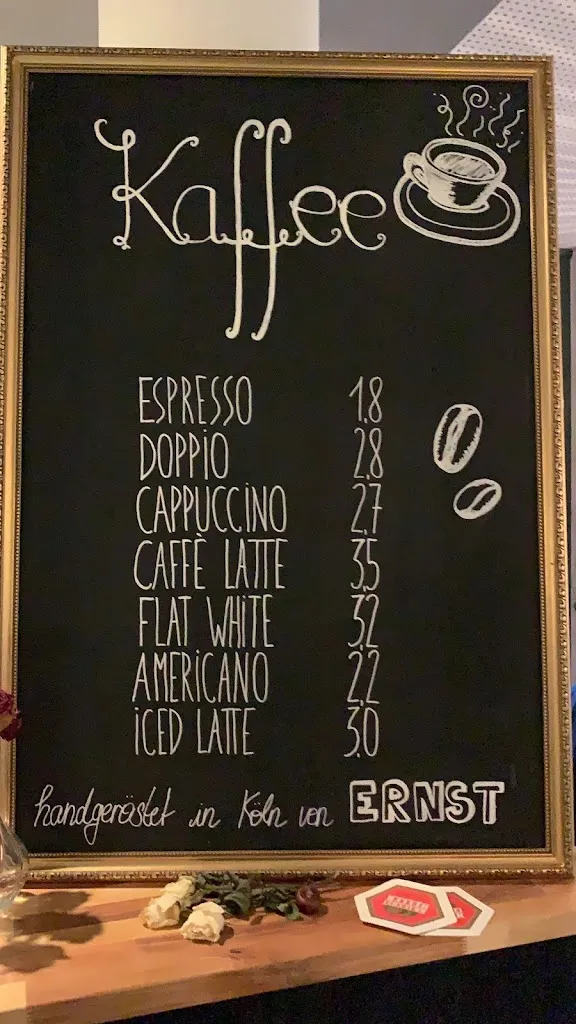 Kaffee
ESPRESSO 1.8
DOPPiO 2.8
CAPPUCCiNO 2.7
CAFFÈ LATTE 3.5
FLAT WHiTE 3.2
AMERiCANO 2.2
iCED LATTE 3.0
handgeröstet in Köln von ERNST